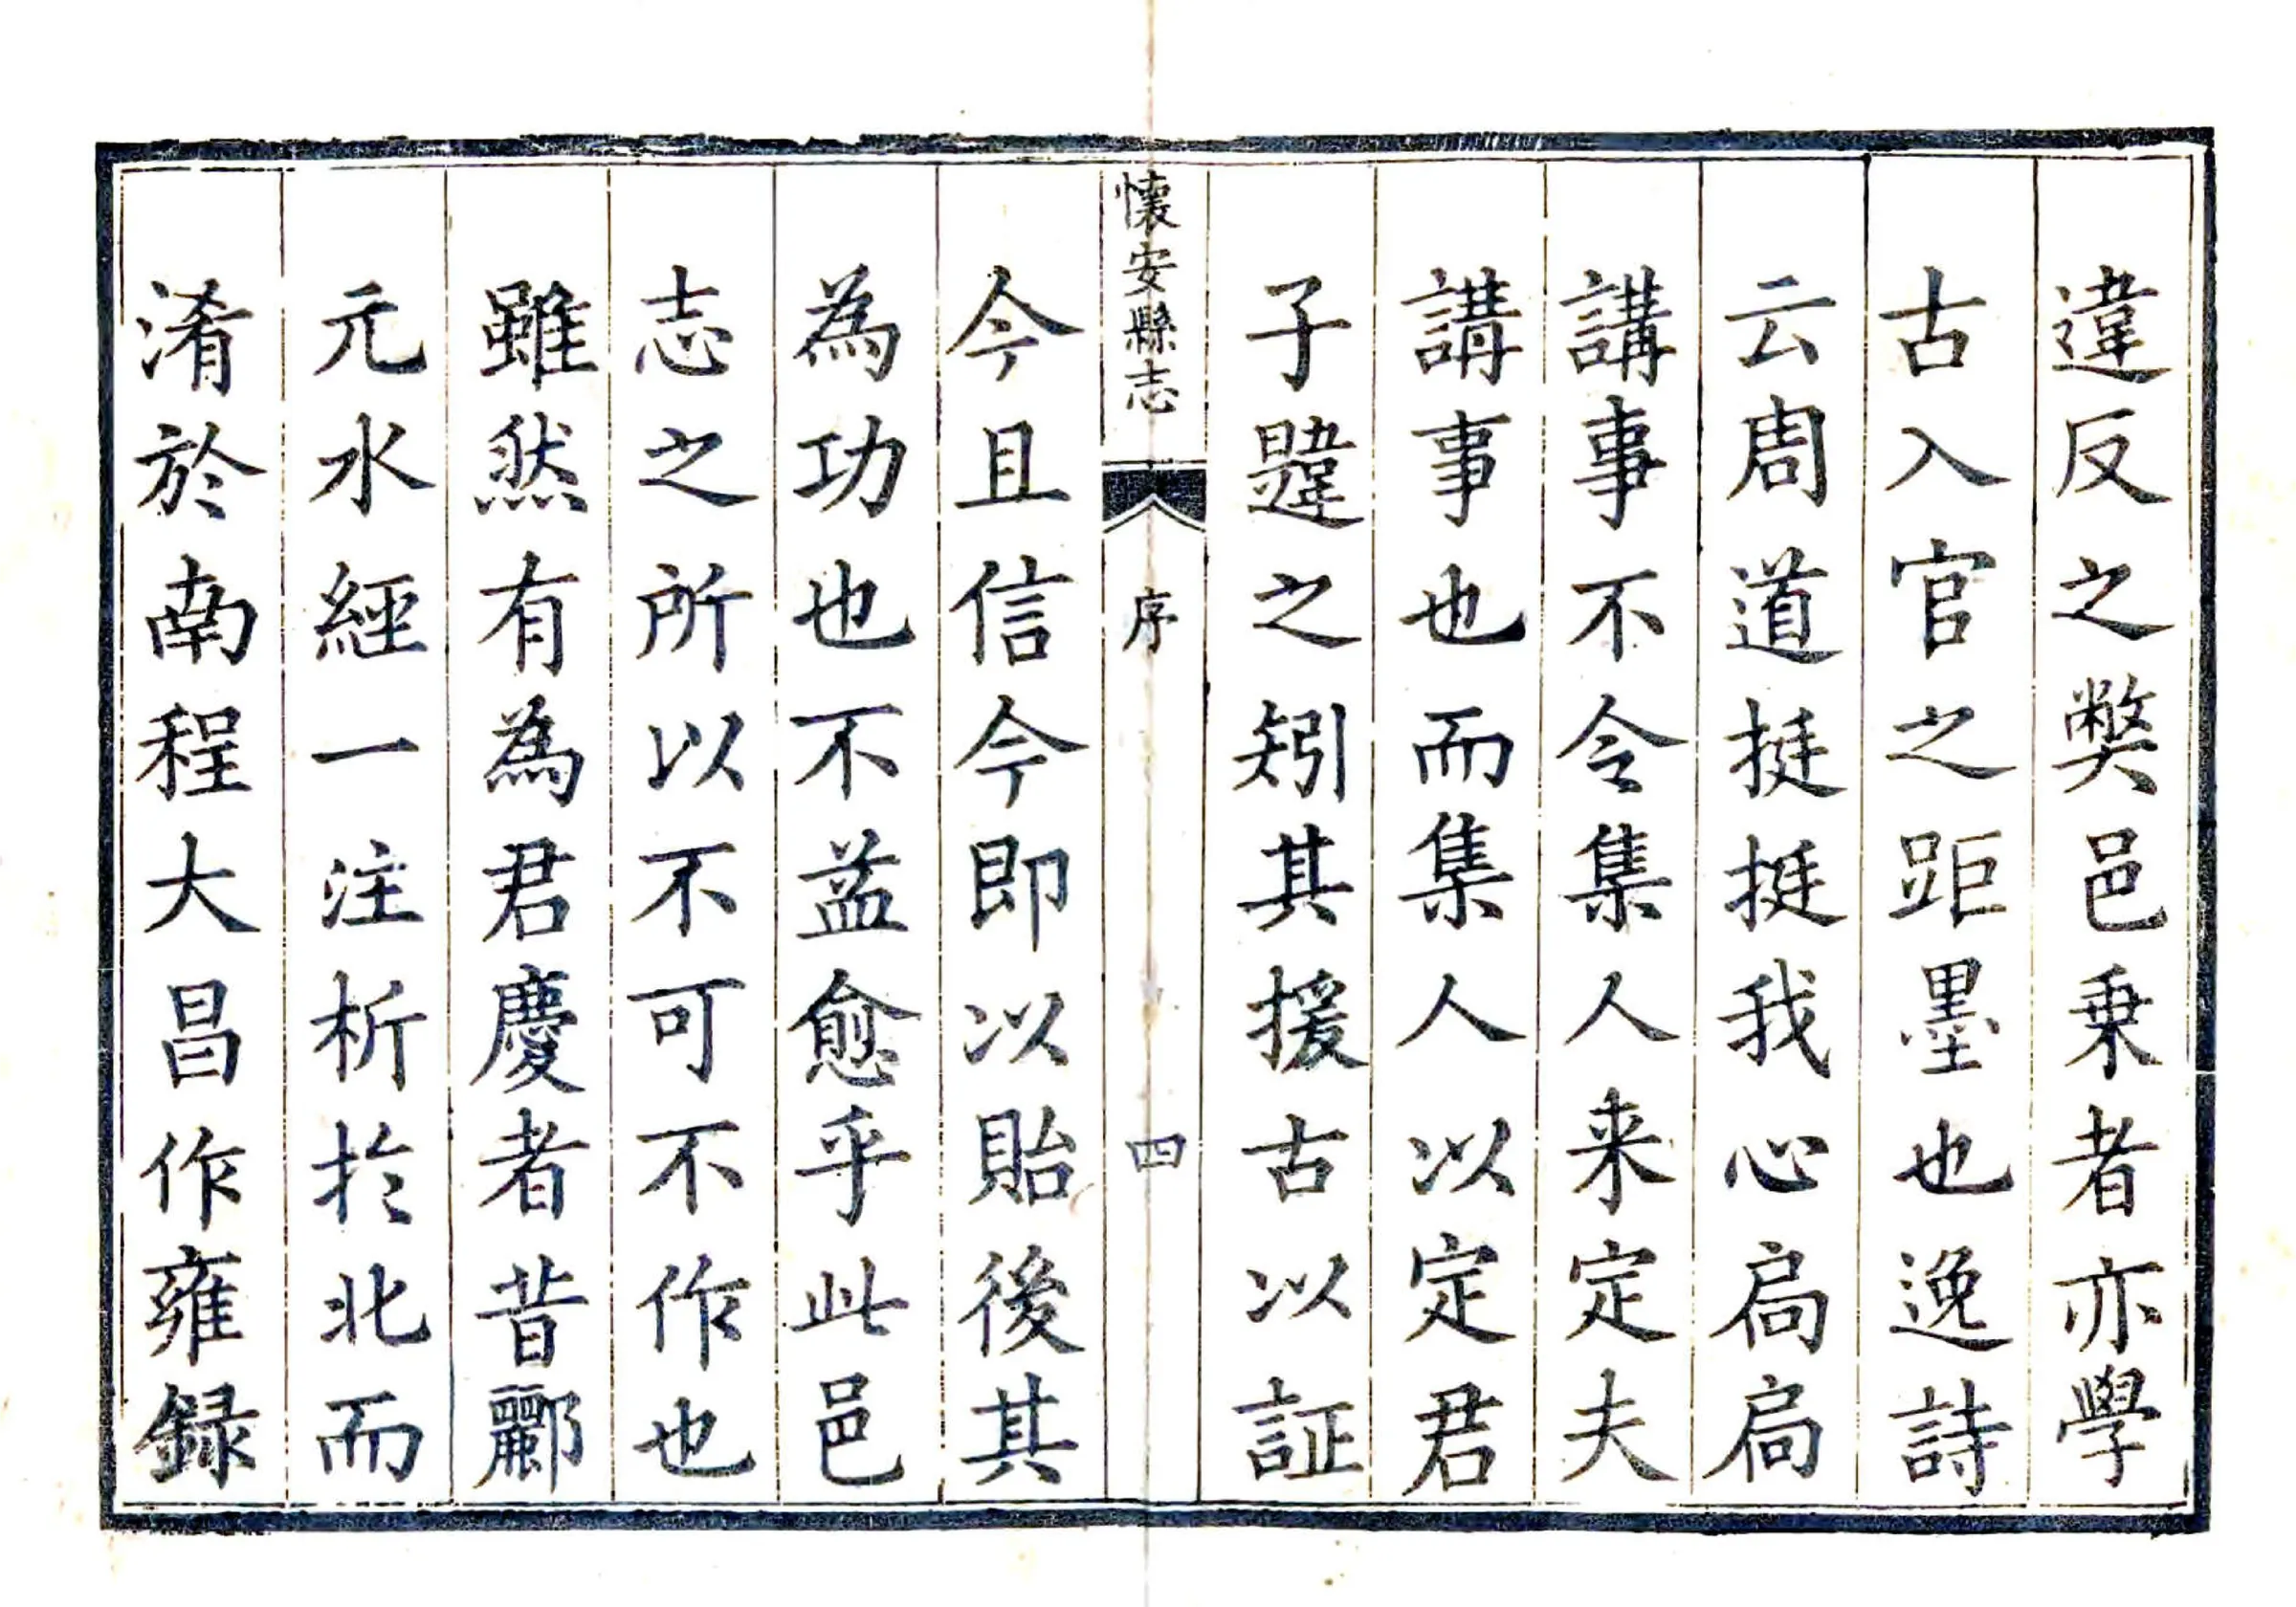 違反之獘邑乗者亦學
古入官之距墨也逸詩
云周道挺挺我心扃扃
講事不令集人来定夫
講事也而集人以定君
子韙之矧其援古以証
懷安縣志 序 四
今且信今即以貽後其
為功也不益愈乎此邑
志之所以不可不作也
雖然有為君慶者昔酈
元水經一注析扵北而
淆於南程大昌作雍録